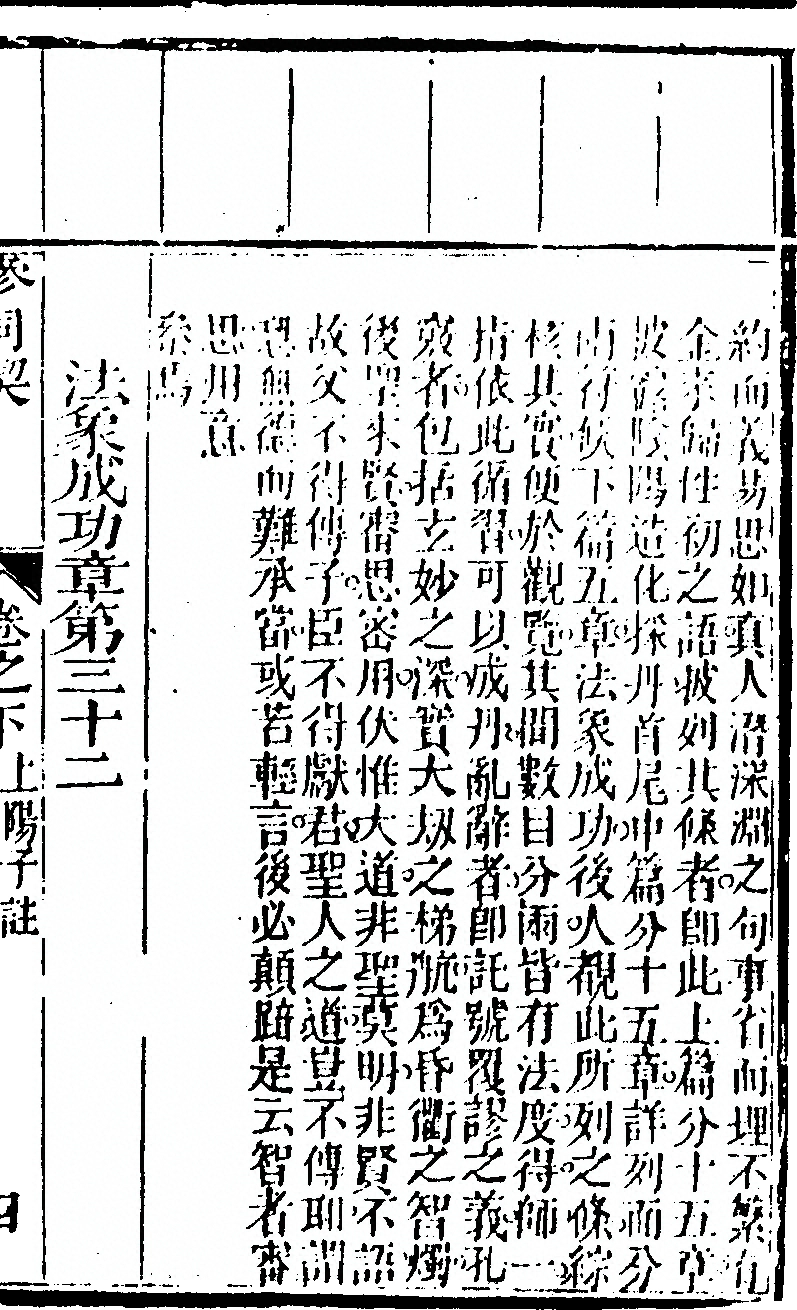 約而義易思如真人潛深淵之句事省而理不繁九
金來歸性初之語披列其條者即此上篇分十五章
披露陰陽造化採丹首尾中篇分十五章詳列而分
兩符候下篇五章法象成功後人覩此所列之條綜
核其實便於觀覽其間數目分兩皆有法度得師一
指依此循習可以成丹亂辭者即託號覆謬之義孔
竅者包括玄妙之深寶大刼之梯航爲昏衢之智燭
後聖來賢審思密用伏惟大道非聖莫明非賢不語
故父不得傳子臣不得獻君聖人之道豈不傳耶謂
恐無德而難承當或若輕言後必顛踣是云智者審
思用意
參焉
法象成功章第三十二
參同契 卷之下 上陽子註 四